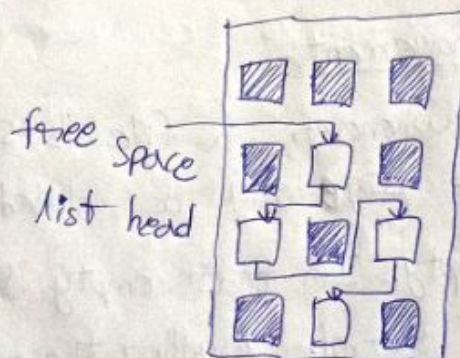 free space
list head